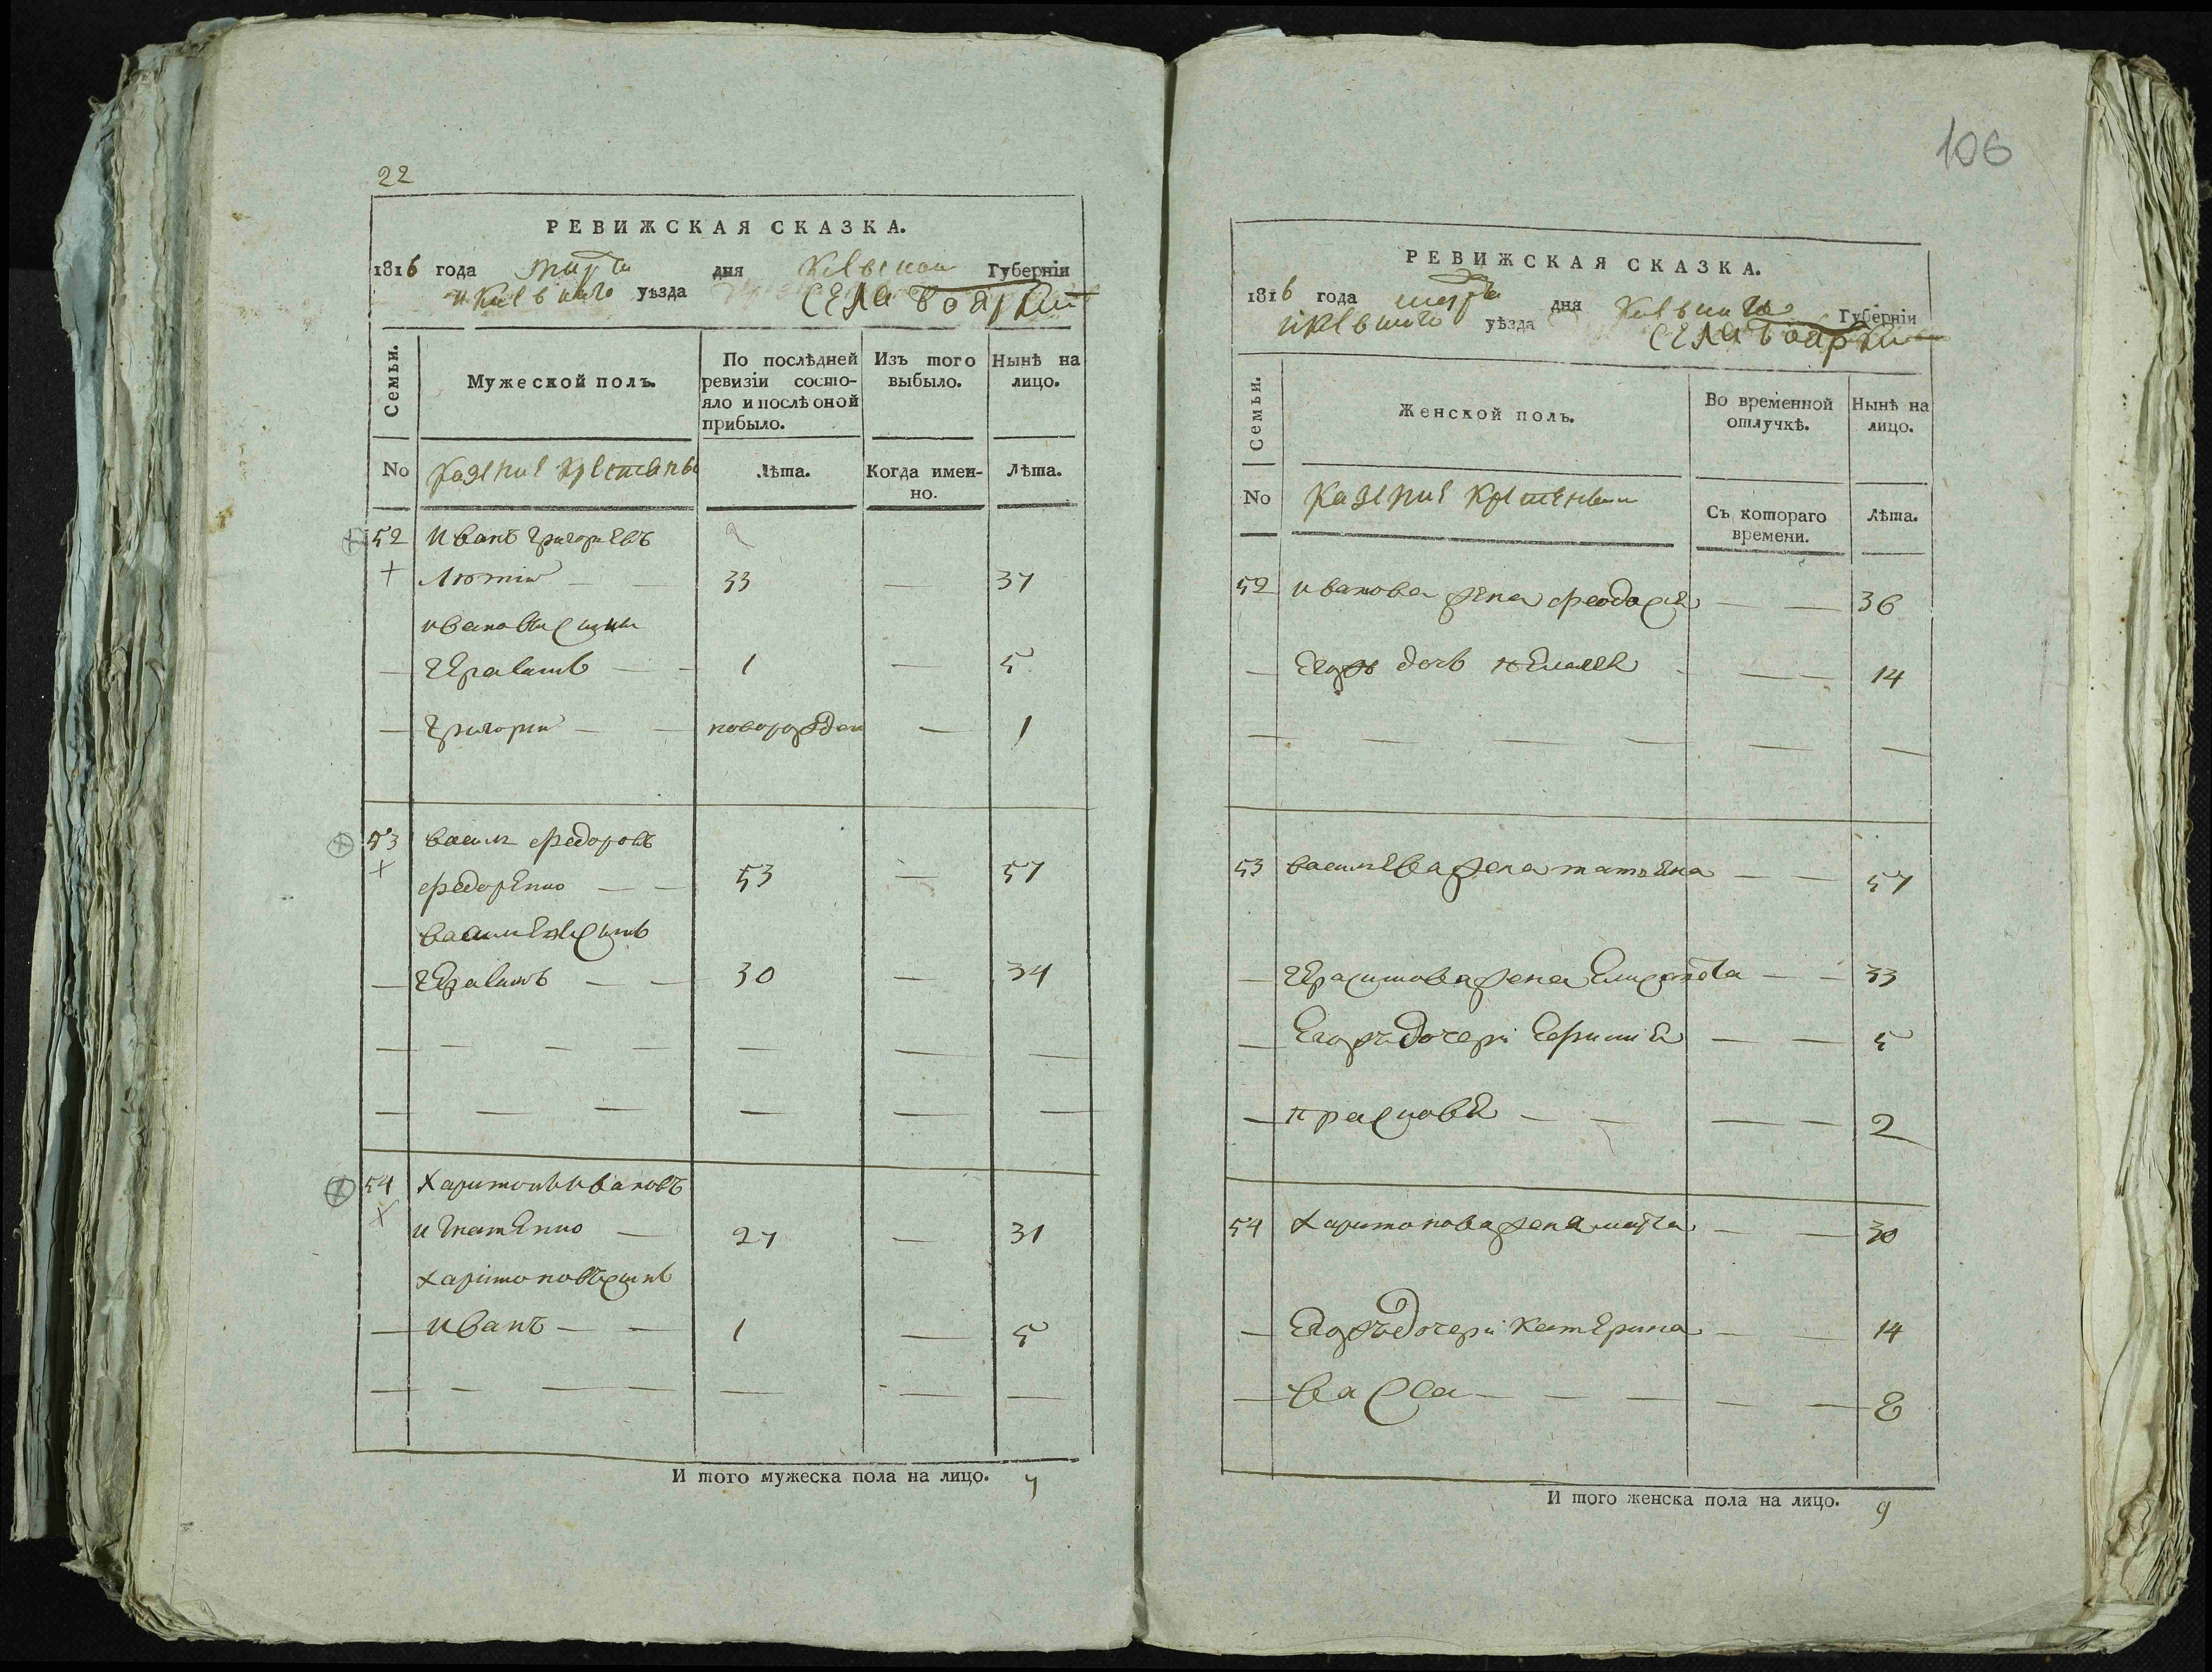 22
РЕВИЖСКАЯ СКАЗКА.
1816 года марта дня Киевской Губерніи
и Киевскаго уѣзда Села Боярки
Семьи.
Мужеской полъ.
По послѣдней ревизіи состо-
яло и послѣ оной
прибыло.
Изъ того
выбыло.
Нынѣ на
лицо.
No
Казенные крестьяне
Лѣта.
Когда имен-
но.
Лѣта.
52 Иванъ Григорьевъ
Лютій — — 33 — 37
Ивановы сыны
— Герасимъ — — 1 — 5
— Григорий — — новорожден — 1
53 Василь Федоровъ
Федоренко — — 53 — 57
Васильевъ сынъ
— Герасимъ — — 30 — 34
54 Харитонъ Ивановъ
Игнатенко — 27 — 31
Харитоновъ сынъ
— Иванъ — — 1 — 5
И того мужеска пола на лицо. 7
106
РЕВИЖСКАЯ СКАЗКА.
1816 года марта дня Киевской Губерніи
и Киевскаго уѣзда Села Боярки
Семьи.
Женской полъ.
Во временной
отлучкѣ.
Нынѣ на
лицо.
No
Казенные крестьяне
Съ котораго
времени.
Лѣта.
52 Иванова жена Феодосия — — 36
— Егожъ дочь — — 14
53 Васильева жена Татьяна — — 57
— Герасимова жена Елисавета — — 33
— Егожъ дочери Ефимия — — 5
— Прасковья — — — — 2
54 Харитонова жена Марфа — — 30
— Егожъ дочери Катерина — — 14
— Васса — — — — — 8
И того женска пола на лицо. 9